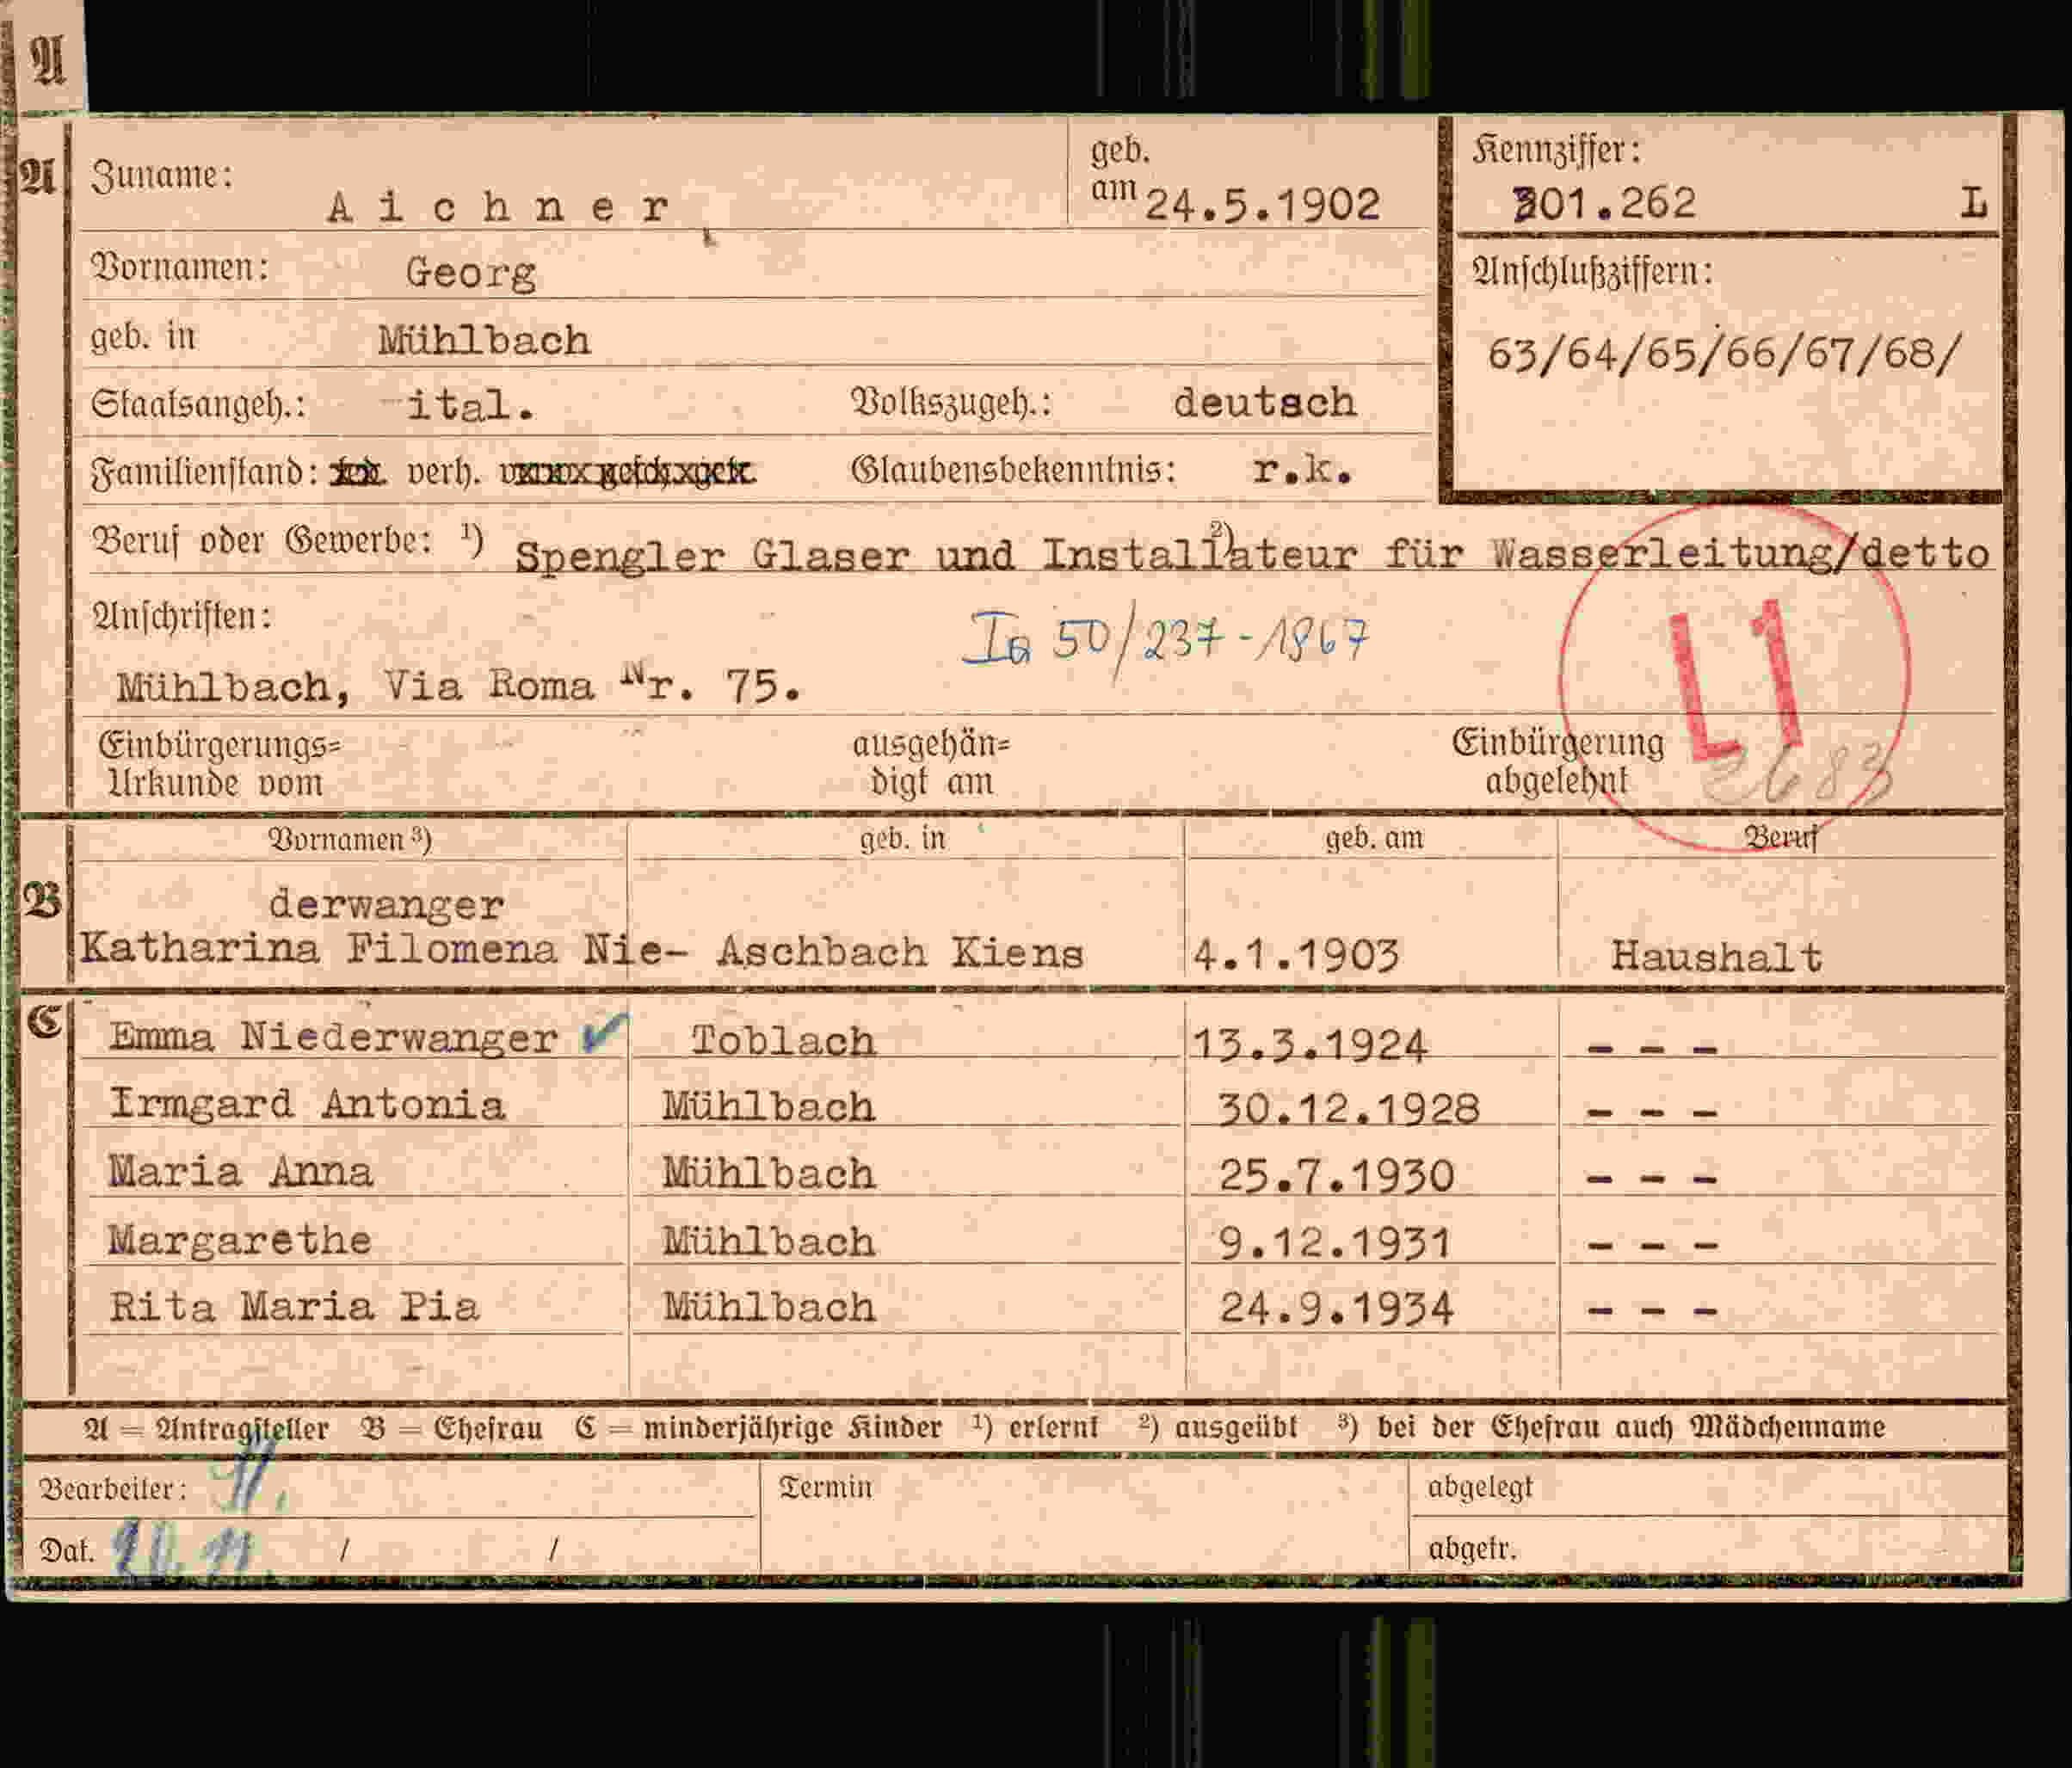 A
A
Zuname: Aichner geb. am 24.5.1902
Kennziffer: 301.262 L
Vornamen: Georg
Anschlußziffern:
63/64/65/66/67/68/
geb. in Mühlbach
Staatsangeh.: ital. Volkszugeh.: deutsch
Familienstand: verh. Glaubensbekenntnis: r.k.
Beruf oder Gewerbe: ¹) Spengler Glaser und Installateur für Wasserleitung/detto
²)
Anschriften:
Ia 50/237-1967
L1
Mühlbach, Via Roma Nr. 75.
Einbürgerungs= Urkunde vom
ausgehän= digt am
Einbürgerung abgelehnt
2683
Vornamen ³) geb. in geb. am Beruf
B
derwanger
Katharina Filomena Nie- Aschbach Kiens 4.1.1903 Haushalt
C
Emma Niederwanger ✓ Toblach 13.3.1924 - - -
Irmgard Antonia Mühlbach 30.12.1928 - - -
Maria Anna Mühlbach 25.7.1930 - - -
Margarethe Mühlbach 9.12.1931 - - -
Rita Maria Pia Mühlbach 24.9.1934 - - -
A = Antragsteller B = Ehefrau C = minderjährige Kinder ¹) erlernt ²) ausgeübt ³) bei der Ehefrau auch Mädchenname
Bearbeiter: Termin abgelegt
Dat. / / abgetr.